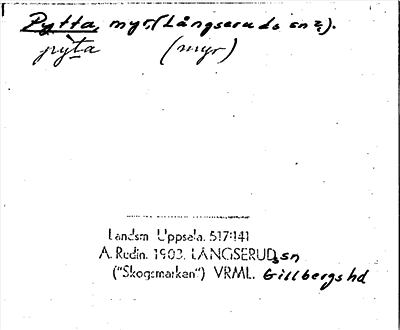 Pytta, myr (Långseruds sn?).
pyta (myr)
Landsm. Uppsala. 517:141
A. Rudin. 1903. LÅNGSERUDs sn
("Skogsmarken") VRML. Gillbergs hd